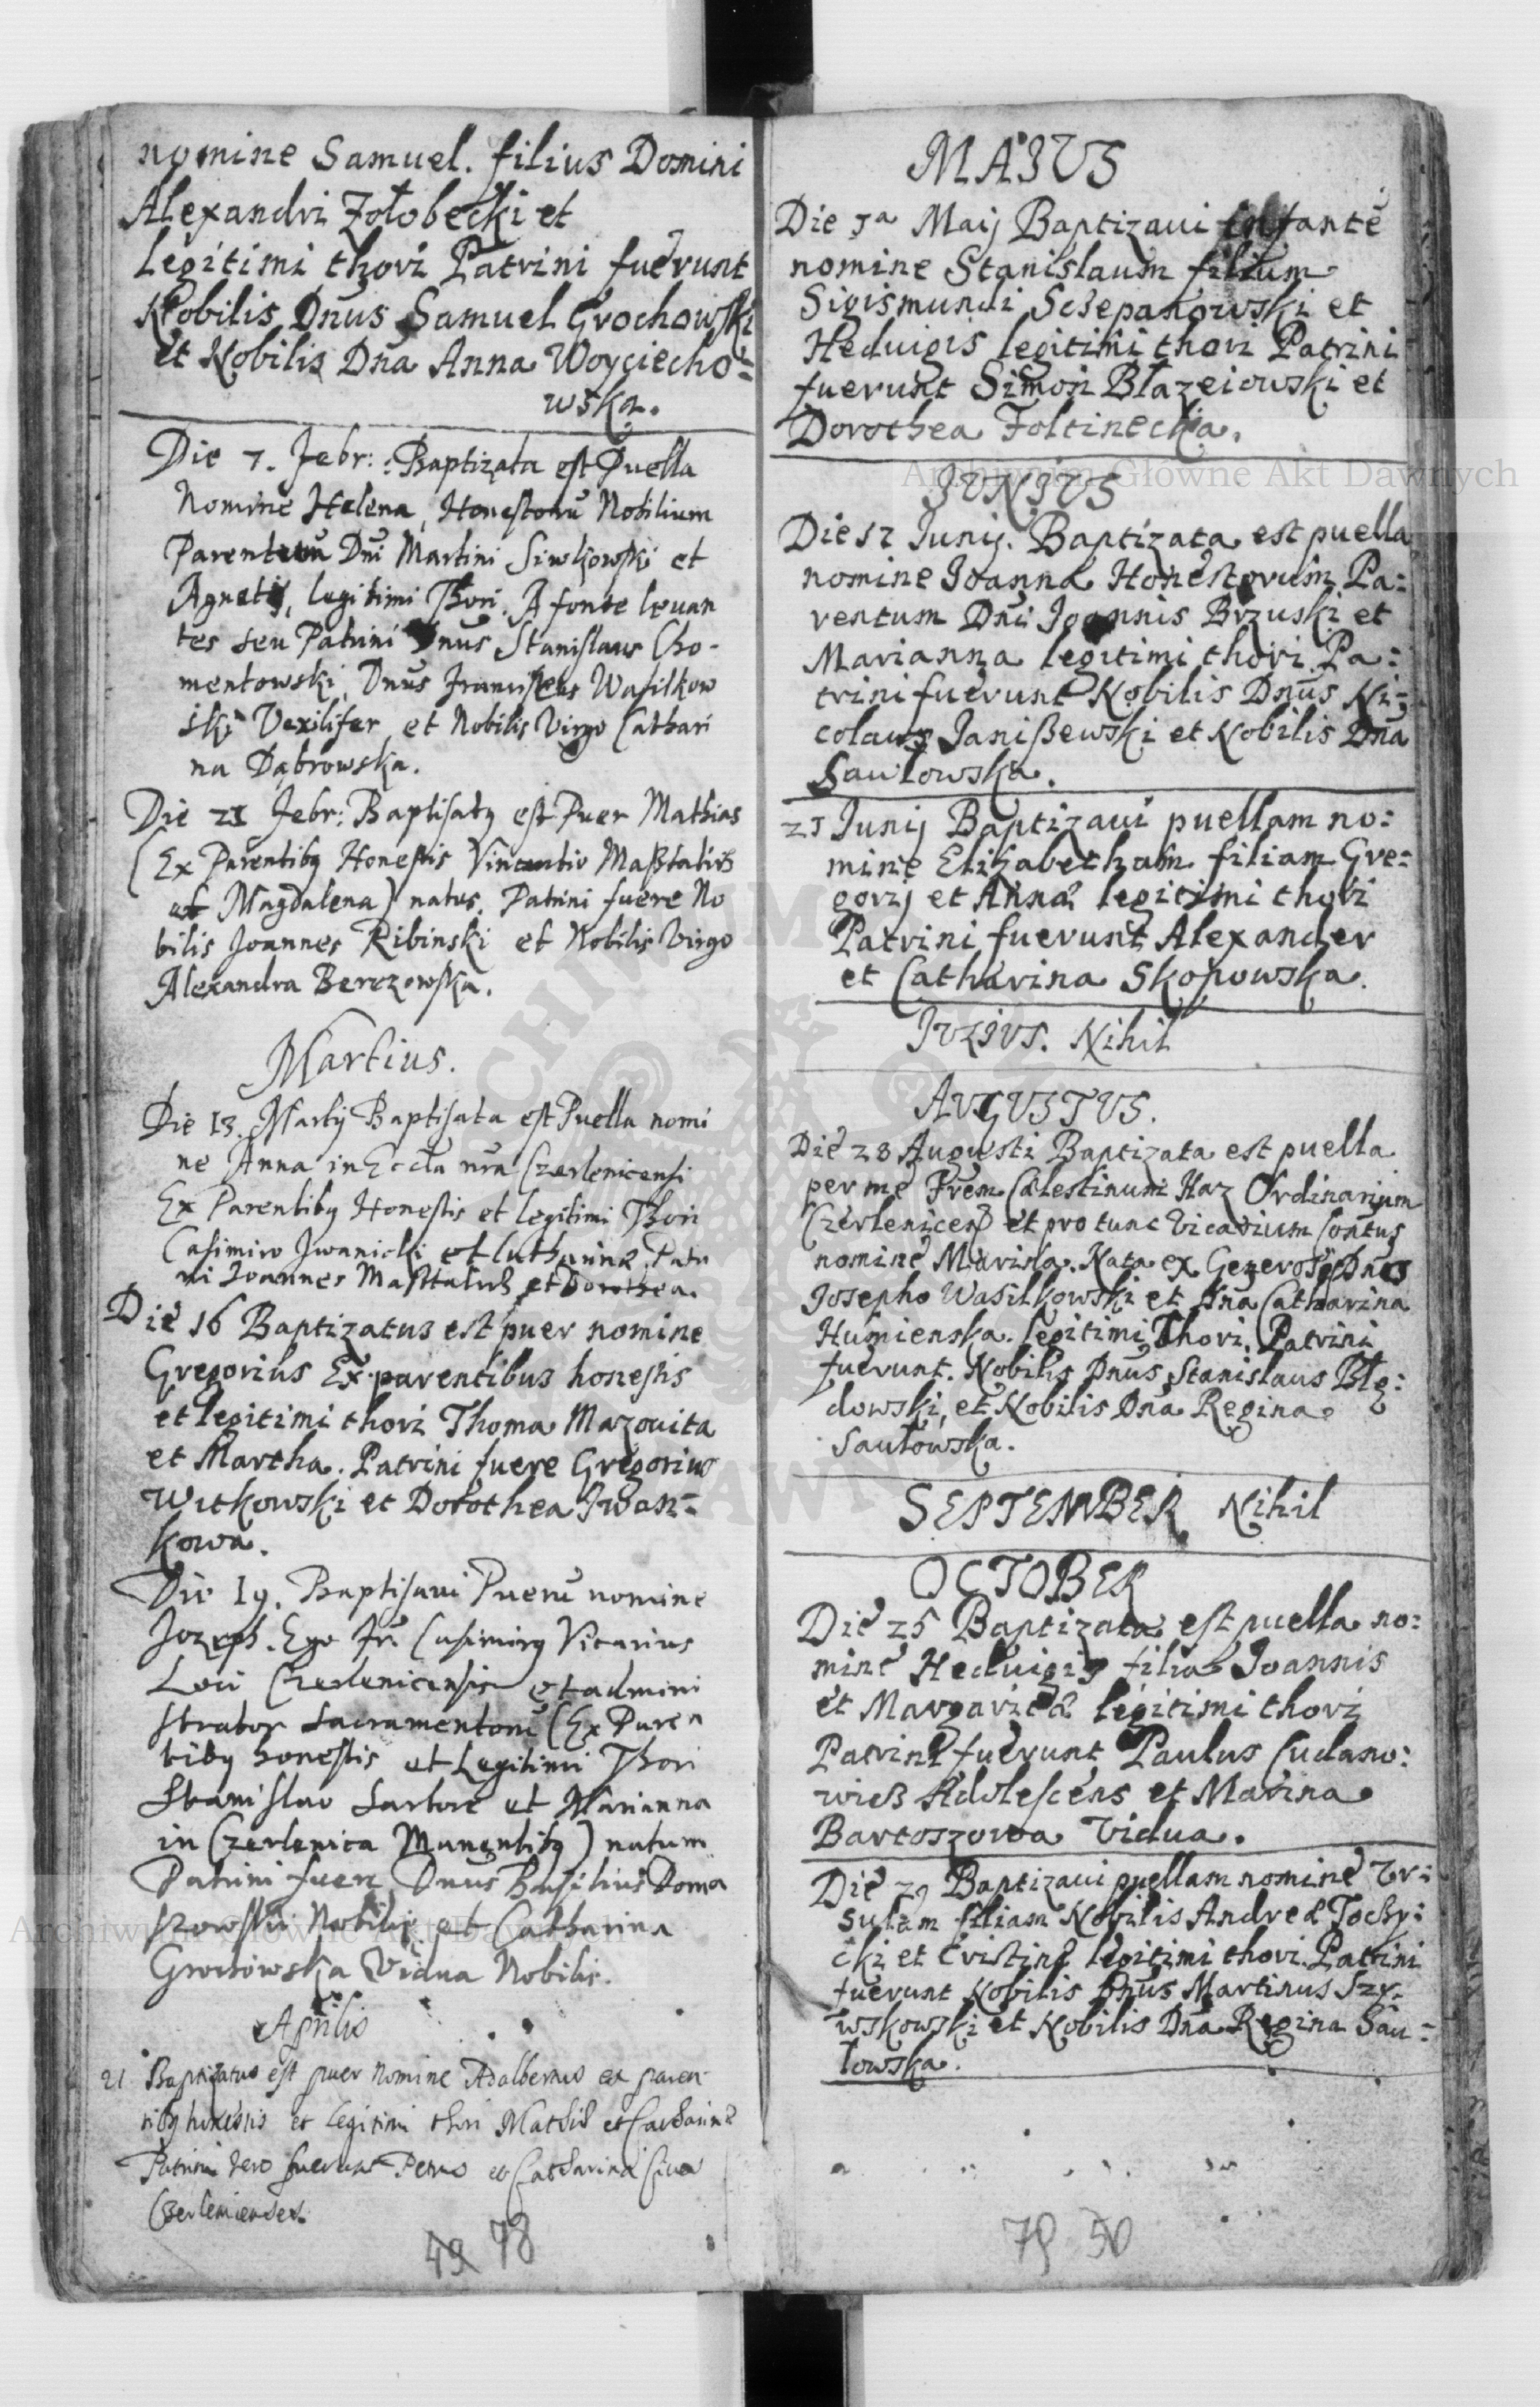 nomine Samuel. filius Domini
Alexandri Zołobecki et
Legitimi thori Patrini fuerunt
Nobilis Dnus Samuel Grochowski
et Nobilis Dna Anna Woyciecho=
wska.
Die 7. Febr: Baptizata est Puella
Nomine Helena, Honestorū Nobilium
Parentum Dni Martini Siwkowski et
Agnetis, legitimi Thori. A fonte levan
tes seu Patrini Dnus Stanislaus Cho-
mentowski, Dnus Franciscus Wasilkow
ski Vexilifer et Nobilis Virgo Cathari
na Dąbrowska.
Die 21 Febr: Baptisatq est Puer Mathias
(Ex Parentibq Honestis Vincentio Masztalirz
et Magdalena) natus. Patrini fuere No
bilis Joannes Ribinski et Nobilis Virgo
Alexandra Berezowska.
Martius.
Die 13. Martij Baptisata est Puella nomi
ne Anna in Eccla nra Czerlenicensi
Ex Parentibq Honestis et legitimi Thori
Casimiro Jwanicki et Catharina. Patri
ni Joannes Masztalirz et Dorothea.
Die 16 Baptizatus est puer nomine
Gregorius Ex parentibus honestis
et legitimi thori Thoma Mazovita
et Martha. Patrini fuere Gregorius
Witkowski et Dorothea Jwan=
kowa.
Die 19. Baptisavi Puerū nomine
Jozeph. Ego Fr. Casimirq Vicarius
Loci Czerlenicensis et admini
strator Sacramentorū (Ex Paren
tibq honestis et Legitimi Thori
Stanislao Sartore et Marianna
in Czerlenica Manentibq) natum
Patrini fuere Dnus Basilius Doma
Nobilis et Catharina
Grochowska Vidua Nobilis.
Aprilis
21 Baptizatus est puer nomine Adalbertus ex paren
tibq honestis et legitimi thori Mathiæ et Catharinæ
Patrini vero fuerunt Petrus et Catharina Cives
Czerlenienses.
49 78
MAJUS
Die 5a Maij Baptizavi Infantē
nomine Stanislaum filium
Sigismundi Scsepanowski et
Heduigis legitimi thori Patrini
fuerunt Simon Błazeiowski et
Dorothea Foltinecka.
JUNJUS
Die 12 Iunij. Baptizata est puella
nomine Joanna Honestorum Pa:
rentum Dni Joannis Brzuski et
Marianna legitimi thori Pa:
trini fuerunt Nobilis Dnus Ni:
colaus Janißewski et Nobilis Dna
Sawłowska.
25 Junij Baptizavi puellam no:
mine Elisabetham filiam Gre:
gorij et Annæ legitimi thori
Patrini fuerunt Alexander
et Catharina Skopowska.
JULJUS. Nihil
AUGUSTUS.
Die 28 Augusti Baptizata est puella
per me Frem Cælestinum Haz Ordinarium
Czerlenicen et pro tunc Vicarium Contus
nomine Marina. Nata ex Generosis Dnis
Josepho Wasilkowski et Dna Catharina
Humienska. legitimi Thori. Patrini
fuerunt. Nobilis Dnus Stanislaus Błę:
dowski, et Nobilis Dna Regina
Sawłowska.
SEPTEMBER Nihil
OCTOBER
Die 25 Baptizata est puella no:
mine Heduigis filia Joannis
et Margaritæ legitimi thori
Patrini fuerunt Paulus Cudano:
wicß Adolescens et Marina
Bartoszowa Vidua.
Die 29 Baptizavi puellam nomine Ur:
sulam filiam Nobilis Andreæ Tochy:
cki et Cristinæ legitimi thori. Patrini
fuerunt Nobilis Dnus Martinus Szy-
wskowski et Nobilis Dna Regina Saw:
łowska.
79 50
Archiwum Główne Akt Dawnych
Archiwum Główne Akt Dawnych